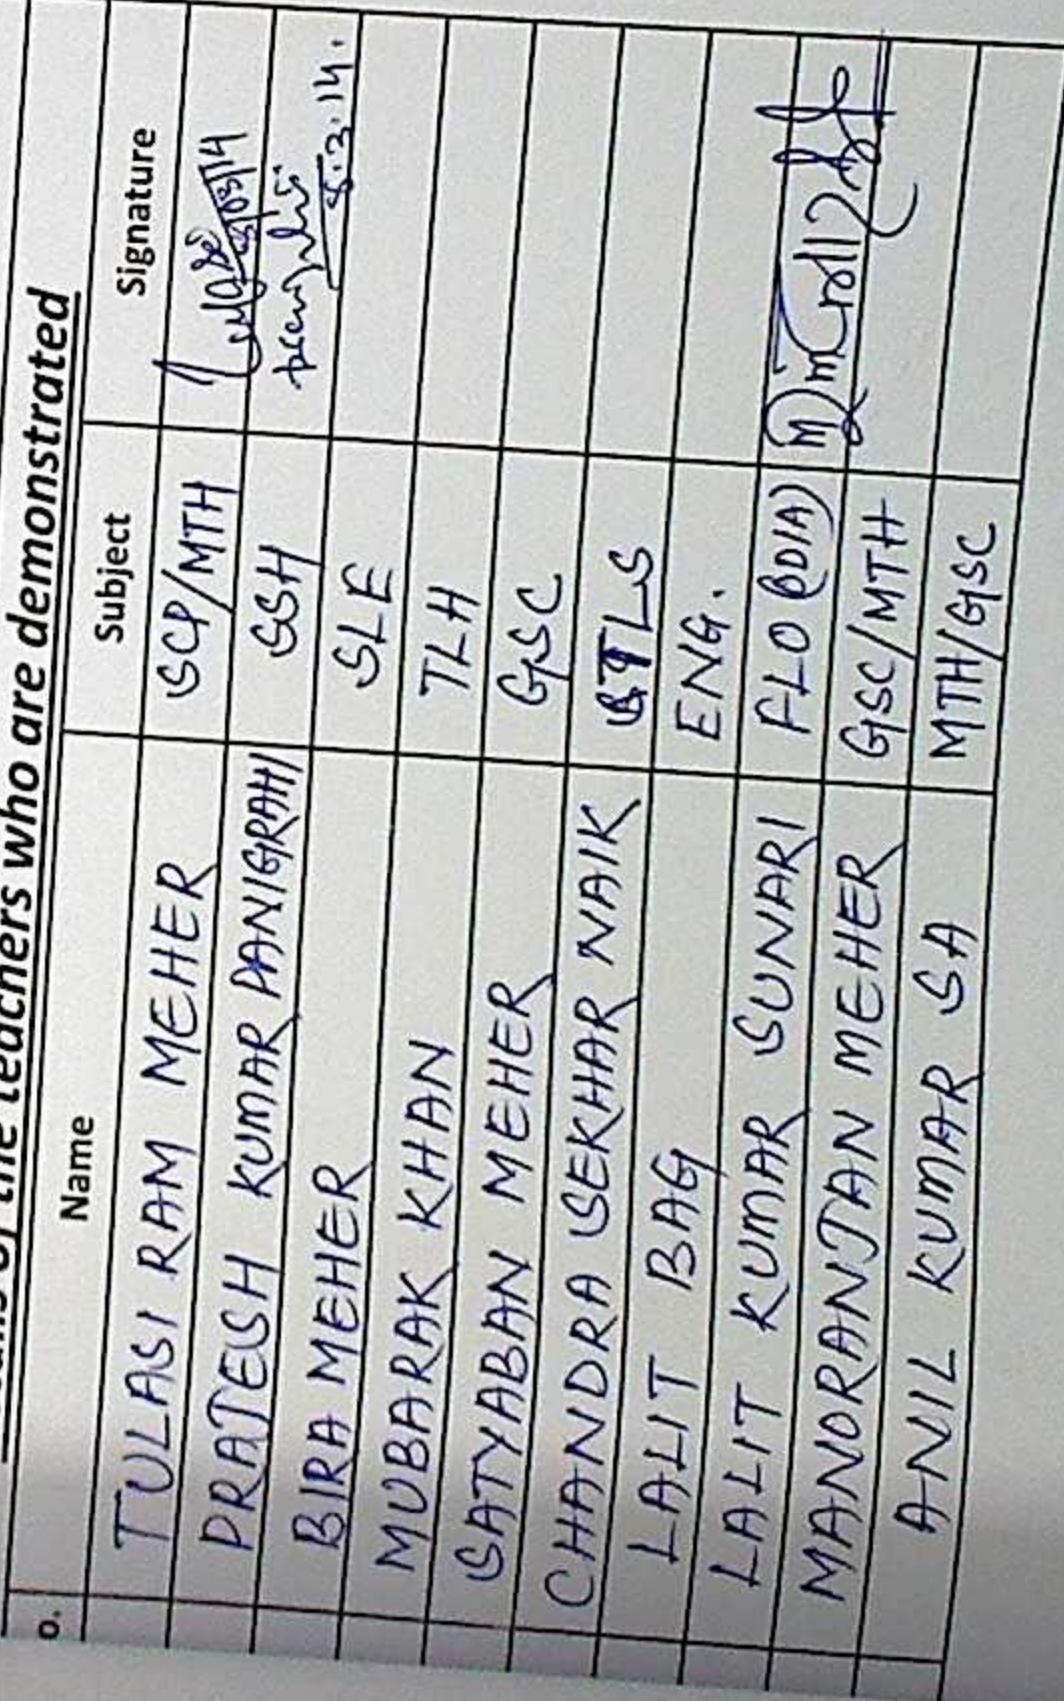 of the teachers who are demonstrated
o. Name Subject Signature
TULASI RAM MEHER SCP/MTH
PRATESH KUMAR PANIGRAHI SSH
5.3.14.
BIRA MEHER SLE
MUBARAK KHAN TLH
SATYABAN MEHER GSC
CHANDRA SEKHAR NAIK TLS
LALIT BAG ENG.
LALIT KUMAR SUNARI FLO (ODIA)
MANORANJAN MEHER GSC/MTH
ANIL KUMAR SA MTH/GSC